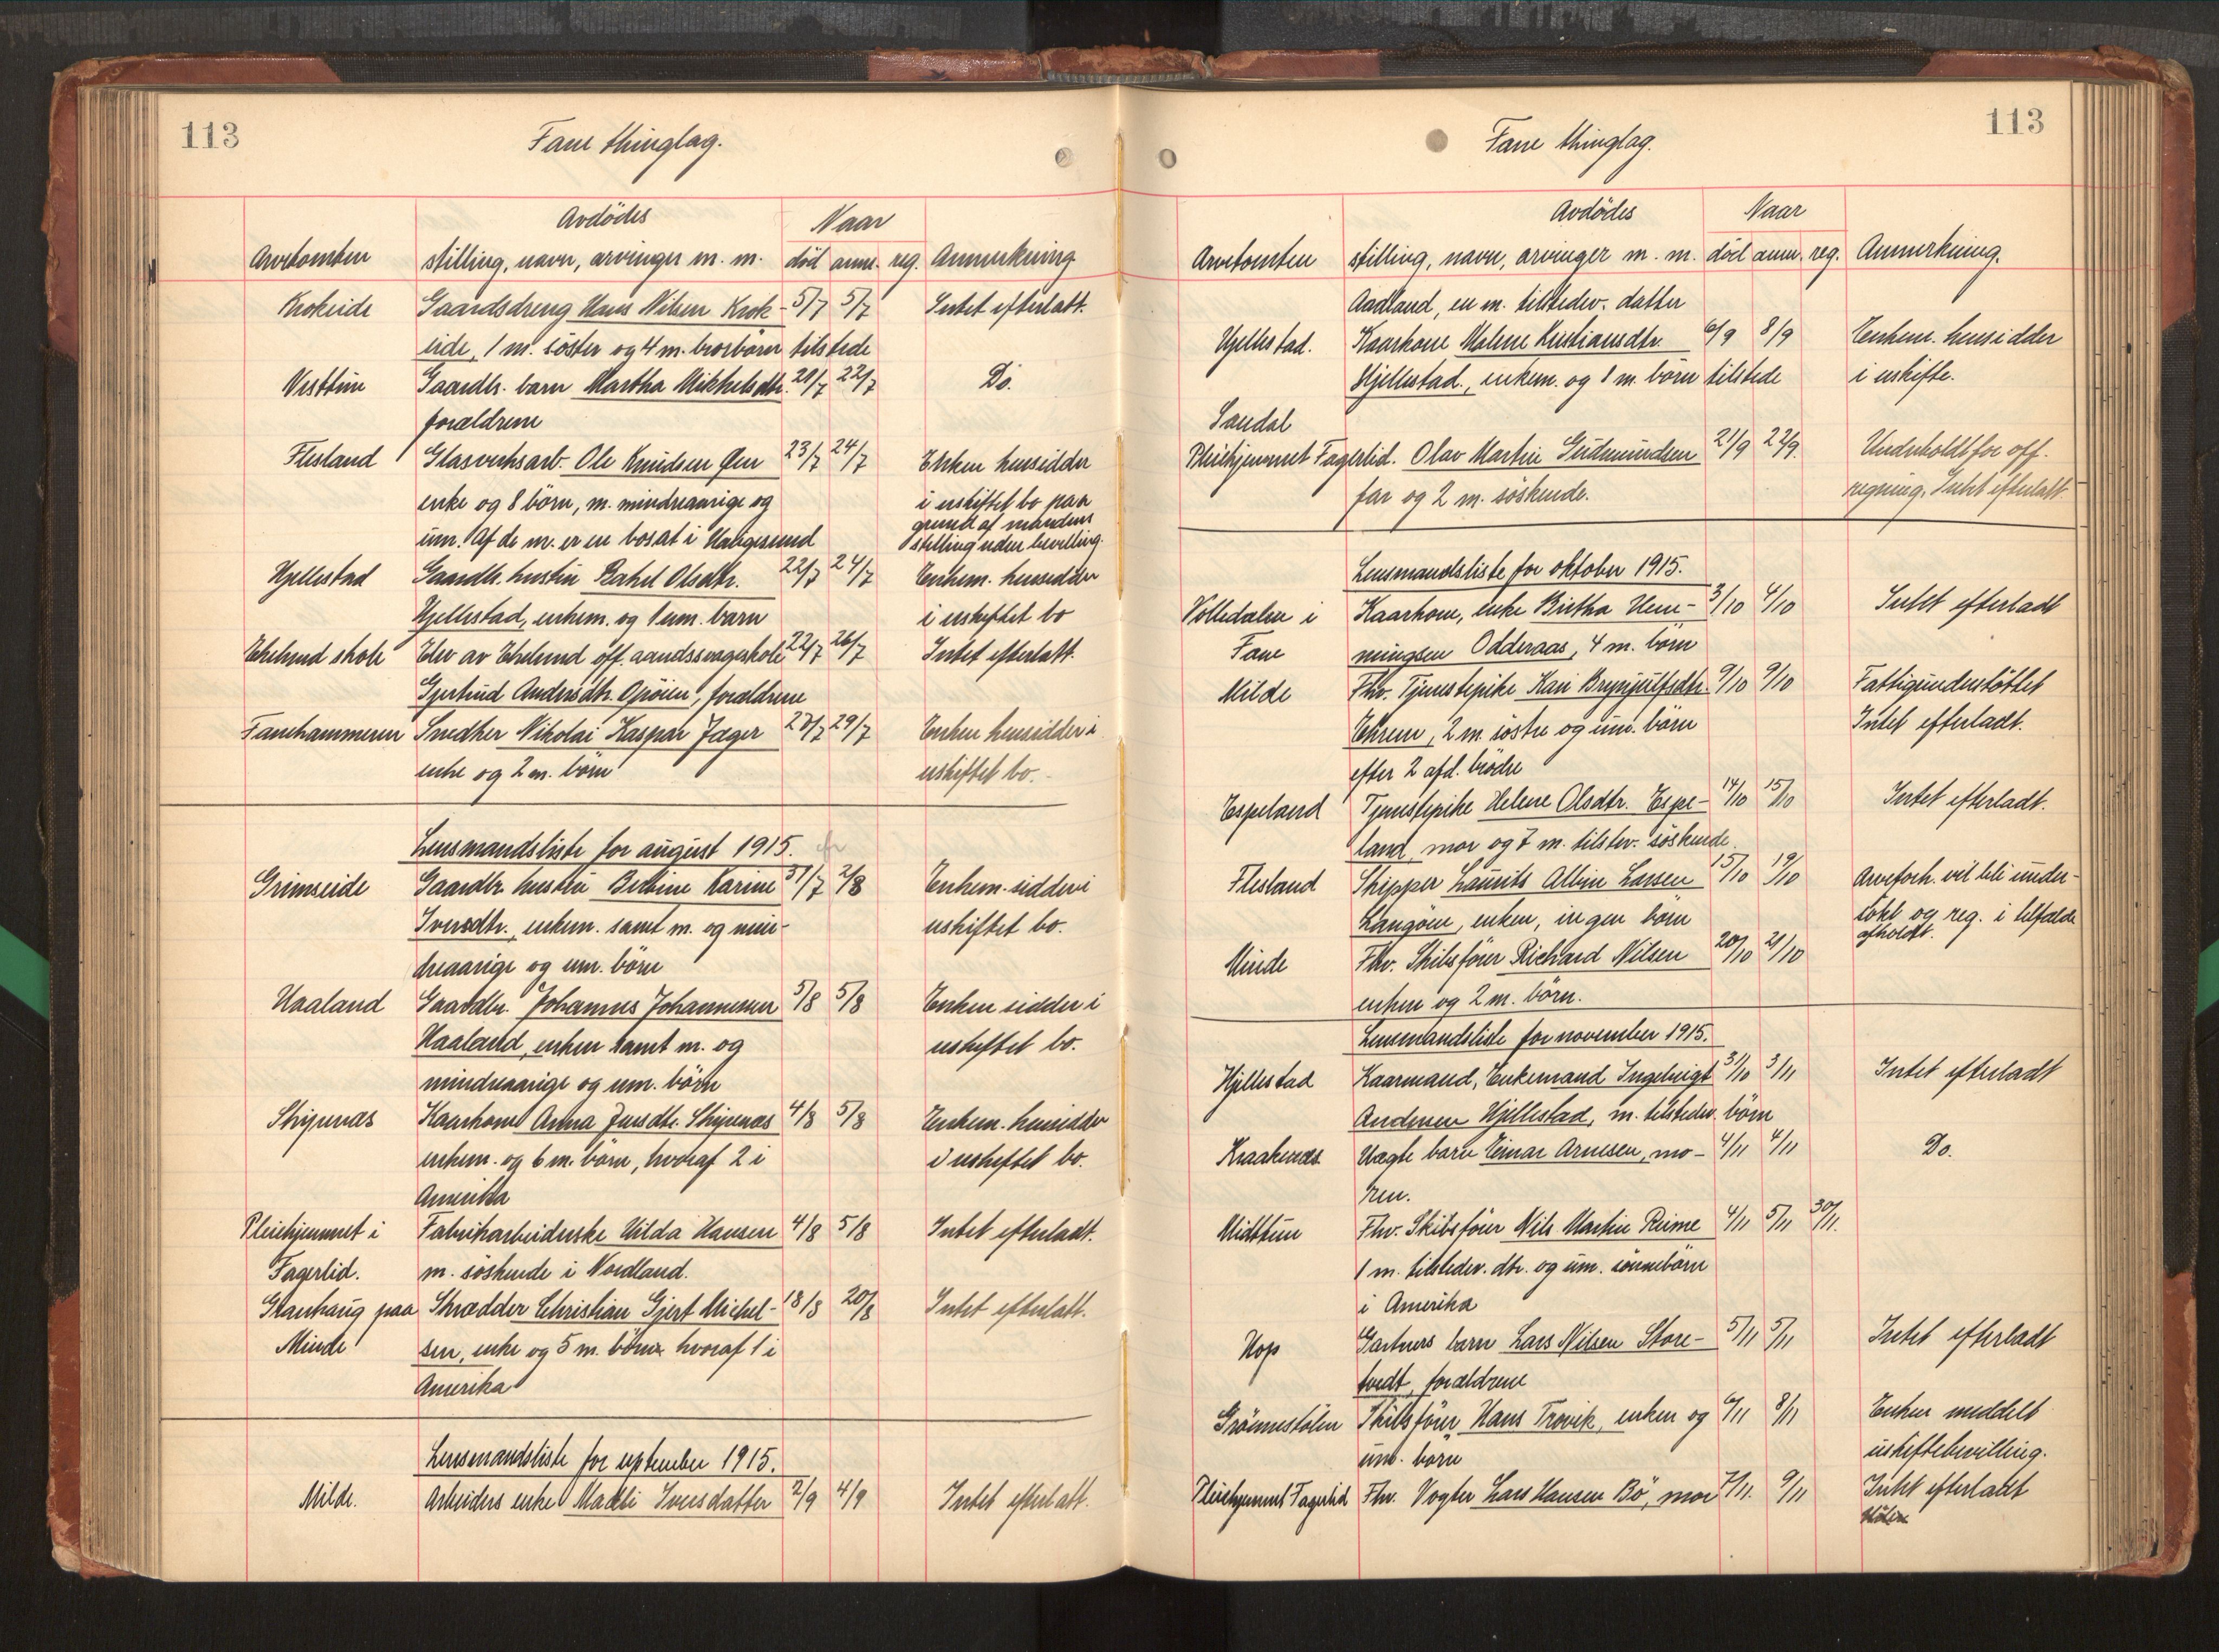 113
Fane thinglag.
Avdödes
Naar
Arvetomten stilling, navn, arvinger m. m. död anm. reg. Anmerkning
Krokeide Gaardsdreng Hans Nilsen Krok- 5/7 5/7 Intet efterlatt.
eide, 1 m. söster og 4 m. brorbörn tilstede
Vesttun Gaardbr. barn Martha Mikkelsdtr. 21/7 22/7 Do.
forældrene
Flesland Glasverksarb. Ole Knudsen Øen 23/7 24/7 Enken hensidder
enke og 8 börn, m. mindreaarige og i uskiftet bo paa
grund af mandens
um. Af de m. er en bosat i Haugesund stilling uden bevilling.
Hjellestad Gaardbr. hustru Rakel Olsdtr. 22/7 24/7 Enkem. hensidder
Hjellestad, enkem. og 1 um. barn i uskiftet bo
Ekelund skole Elev av Ekelund off. aandssvageskole 22/7 26/7 Intet efterlatt.
Gjertrud Andersdtr. Opöien, forældrene
Fanehammeren Snedker Nikolai Kaspar Jæger 27/7 29/7 Enken hensidder i
enke og 2 m. börn uskiftet bo.
Lensmandsliste for august 1915.
Grimseide Gaardbr hustru Bertine Karine 31/7 2/8 Enkem. sidder i
Iversdtr., enkem. samt m. og min- uskiftet bo.
dreaarige og um. börn
Haaland Gaardbr. Johannes Johannessen 5/8 5/8 Enken sidder i
Haaland, enken samt m. og uskiftet bo.
mindreaarige og um. börn
Skipenæs Kaarkone Anna Jensdtr. Skipenæs 4/8 5/8 Enkem. hensidder
enkem. og 6 m. börn, hvoraf 2 i i uskiftet bo.
Amerika
Pleiehjemmet i Fabrikarbeiderske Hilda Hansen 4/8 5/8 Intet efterladt.
Fagerlid. m. söskende i Nordland.
Granhaug paa Skrædder Christian Gjert Michel- 18/8 20/8 Intet efterlatt.
Minde sen, enke og 5 m. börn hvoraf 1 i
Amerika
Lensmandsliste for september 1915.
Milde. Arbeiders enke Madli Iversdatter 2/9 4/9 Intet efterlatt.
113
Fane thinglag.
Avdödes Naar
Arvetomten stilling, navn, arvinger m. m. död anm. reg. Anmerkning.
Aadland, en m. tilstedev. datter
Hjellestad. Kaarkone Malene Kristiansdtr. 6/9 8/9 Enkem. hensidder
Hjellestad., enkem. og 1 m. börn tilstede i uskifte.
Sandal
Pleiehjemmet Fagerlid. Olav Martin Gudmundsen 21/9 22/9. Underholdt for off.
far og 2 m. söskende. regning. Intet efterlatt
Lensmandsliste for oktober 1915.
Volledalen i Kaarkone, enke Birtha Hem- 3/10 4/10 Intet efterladt
Fane mingsen Odderaas, 4 m. börn
Milde Fhv. Tjenestepike Kari Brynjulfsdtr. 9/10 9/10 Fattigunderstöttet
Ekren, 2 m. söstre og um. börn Intet efterladt.
efter 2 afd. brödre
Espeland Tjenestepike Helene Olsdtr. Espe- 14/10 15/10 Intet efterladt.
land, mor og 7 m. tilstev. söskende
Flesland Skipper Laurits Albin Larsen 15/10 19/10 Arveforh. vil bli under-
Langöen, enken, ingen börn sökt og reg. i tilfælde
afholdt.
Minde Fhv. Skibsförer Richard Nilsen 20/10 21/10
enken og 2 m. börn.
Lensmandsliste for november 1915.
Hjellestad Kaarmand, Enkemand Ingebrigt 31/10 3/11 Intet efterladt
Andersen Hjellestad, m. tilstedev. börn
Kraakenæs. Uægte barn Einar Arnesen, mo- 4/11 4/11 Do.
ren.
Midttun Fhv. Skibsförer Nils Martin Reime 4/11 5/11 30/11.
1 m. tilstedev. dtr. og um. sönnebörn
i Amerika
Hop Gartners barn Lars Nilsen Store- 5/11 5/11 Intet efterladt
tvedt, forældrene
Grönnestölen Skibsförer Hans Trovik, enken og 6/11 8/11 Enken meddelt
um. börn uskiftebevilling.
Pleiehjemmet Fagerlid Fhv. Vogter Lars Hansen Bö, mor 7/11. 9/11 Intet efterladt